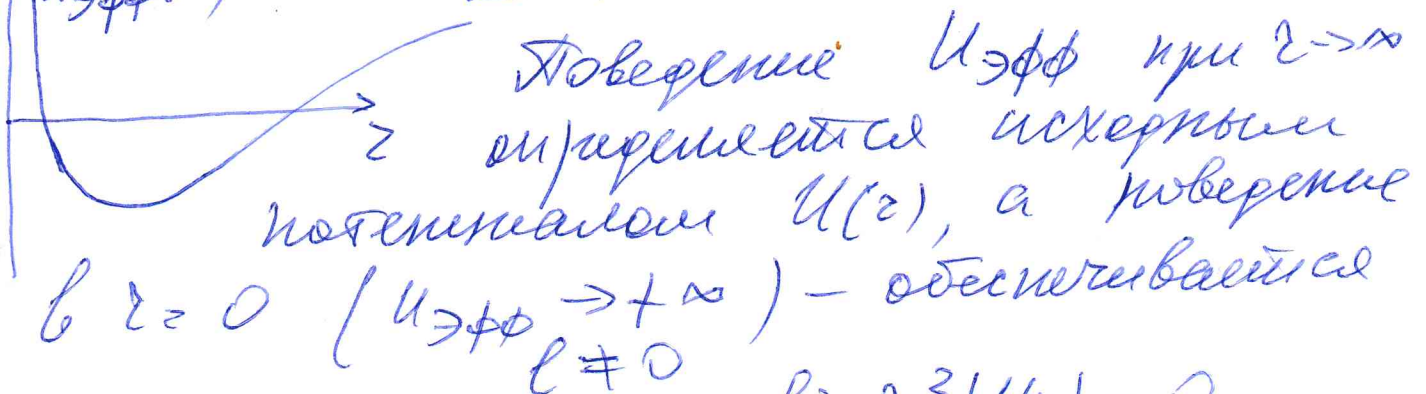 Uэфф
Поведение Uэфф при r→∞
r определяется исходным
потенциалом U(r), а поведение
в r=0 (Uэфф→+∞) – обеспечивается
l≠0